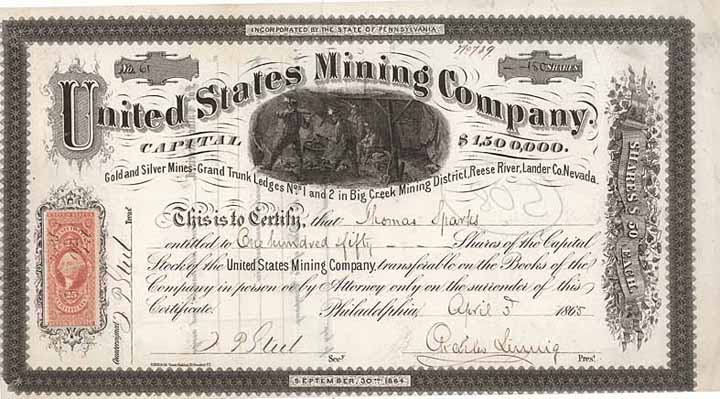 INCORPORATED BY THE STATE OF PENNSYLVANIA
No 739
No. 61
150 SHARES
United States Mining Company.
CAPITAL $1,500,000.
Gold and Silver Mines-Grand Trunk Ledges Nos 1 and 2 in Big Creek Mining District, Reese River, Lander Co. Nevada.
This is to Certify, that Thomas Sparks
entitled to One hundred fifty Shares of the Capital
Stock of the United States Mining Company, transferable on the Books of the
Company in person or by Attorney only on the surrender of this
Certificate. Philadelphia, April 5 1865
J P Steel Secy
Charles Lennig Prest.
SHARES $50 EACH.
Countersigned J P Steel Treas.
25
SEPTEMBER, 30TH 1864.